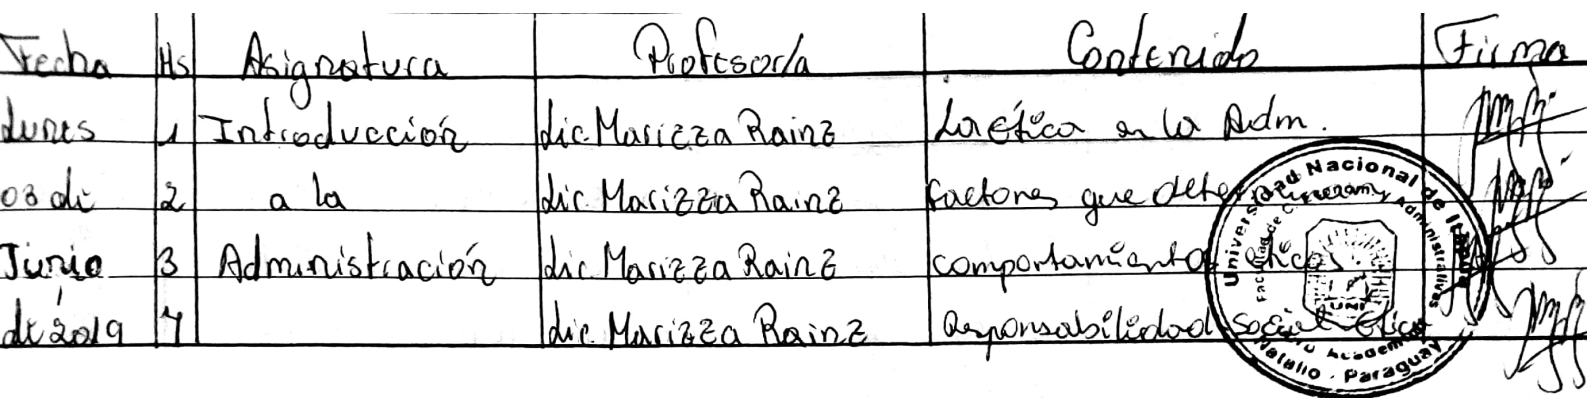 Fecha Hs Asignatura Profesor/a Contenido Firma
Lunes 1 Introducción Lic. Marizza Rainz La ética en la Adm.
03 de 2 a la Lic. Marizza Rainz factores que determinan
Junio 3 Administración Lic. Marizza Rainz comportamientos éticos
de 2019 4 Lic. Marizza Rainz Responsabilidad Social Ética
Universidad Nacional de Itapúa
Facultad de Administrativas
UNI
Natalio - Paraguay